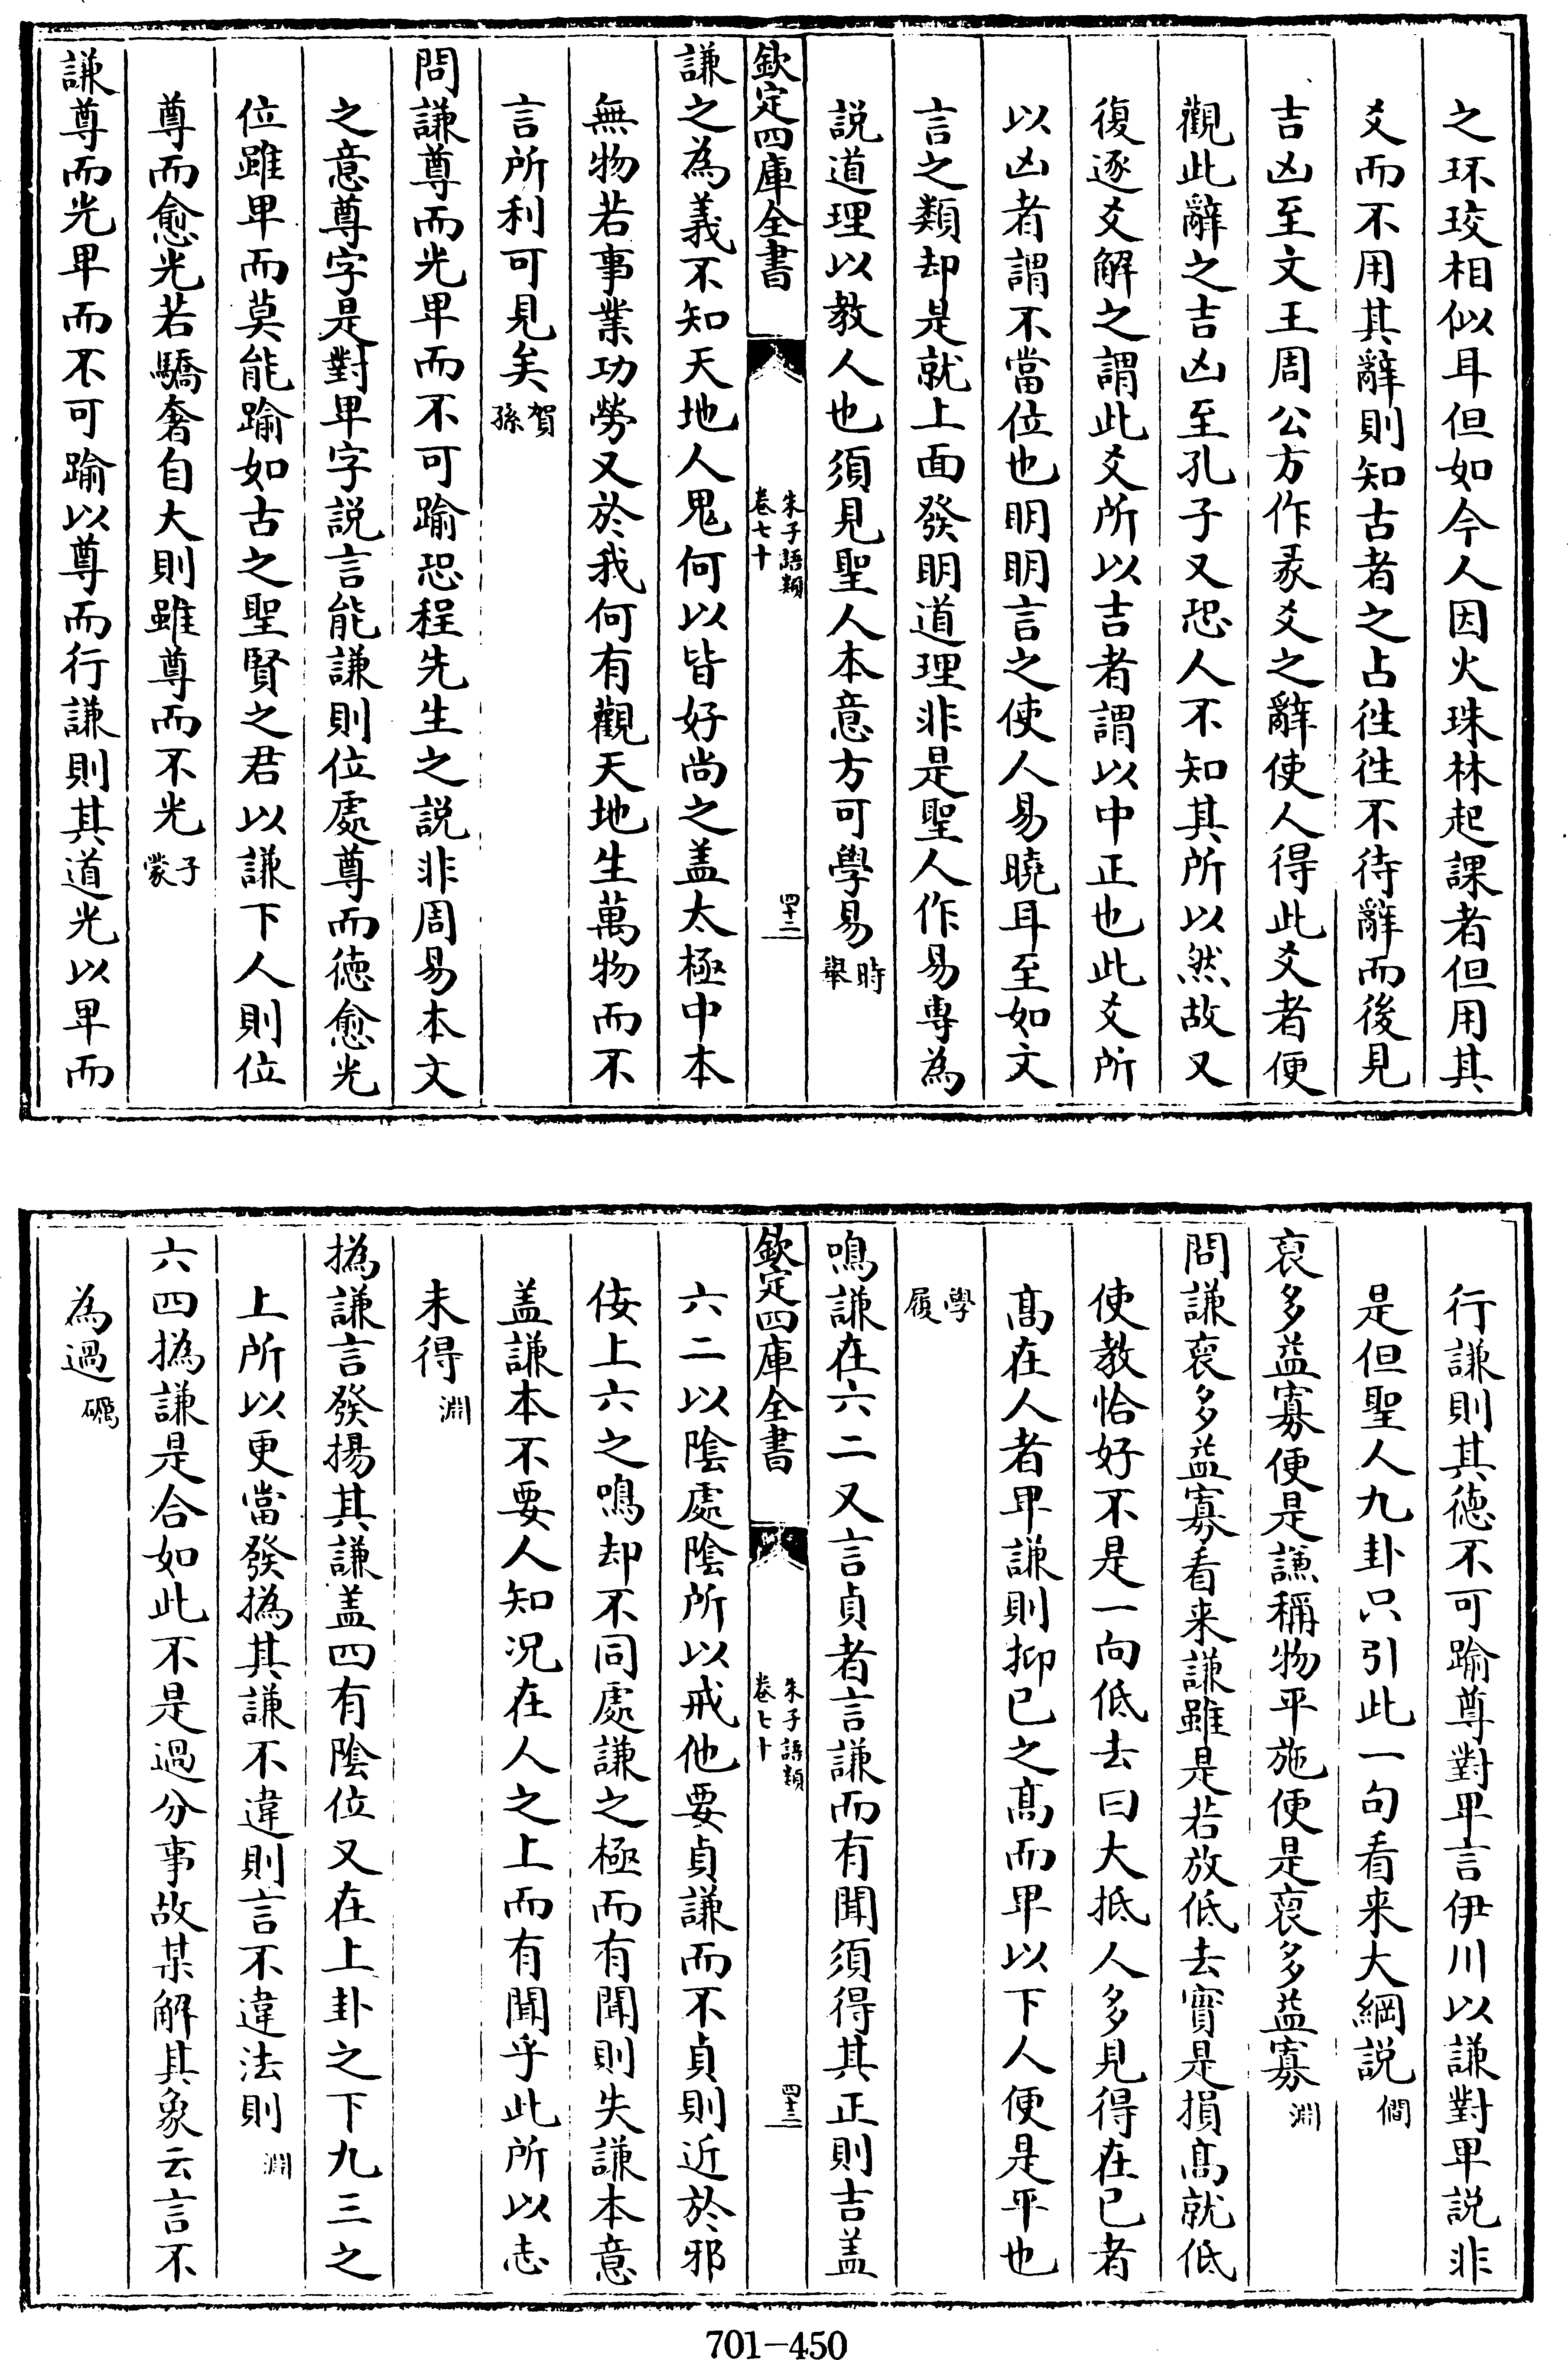 之环珓相似耳但如今人因火珠林起課者但用其
爻而不用其辭則知古者之占徃徃不待辭而後見
吉凶至文王周公方作彖爻之辭使人得此爻者便
觀此辭之吉凶至孔子又恐人不知其所以然故又
復逐爻解之謂此爻所以吉者謂以中正也此爻所
以凶者謂不當位也明明言之使人易曉耳至如文
言之類却是就上面發明道理非是聖人作易專為
説道理以教人也須見聖人本意方可學易時舉
欽定四庫全書
朱子語類
卷七十
四十二
謙之為義不知天地人鬼何以皆好尚之盖太極中本
無物若事業功勞又於我何有觀天地生萬物而不
言所利可見矣賀孫
問謙尊而光卑而不可踰恐程先生之説非周易本文
之意尊字是對卑字説言能謙則位處尊而徳愈光
位雖卑而莫能踰如古之聖賢之君以謙下人則位
尊而愈光若驕奢自大則雖尊而不光子蒙
謙尊而光卑而不可踰以尊而行謙則其道光以卑而
行謙則其徳不可踰尊對卑言伊川以謙對卑説非
是但聖人九卦只引此一句看来大綱説僩
裒多益寡便是謙稱物平施便是裒多益寡淵
問謙裒多益寡看来謙雖是若放低去實是損髙就低
使教恰好不是一向低去曰大抵人多見得在已者
髙在人者卑謙則抑已之髙而卑以下人便是平也
學履
鳴謙在六二又言貞者言謙而有聞須得其正則吉盖
六二以陰處陰所以戒他要貞謙而不貞則近於邪
佞上六之鳴却不同處謙之極而有聞則失謙本意
盖謙本不要人知况在人之上而有聞乎此所以志
未得淵
撝謙言發揚其謙盖四有陰位又在上卦之下九三之
上所以更當發撝其謙不違則言不違法則淵
六四撝謙是合如此不是過分事故某解其象云言不
為過礪
欽定四庫全書
朱子語類
卷七十
四十三
701-450